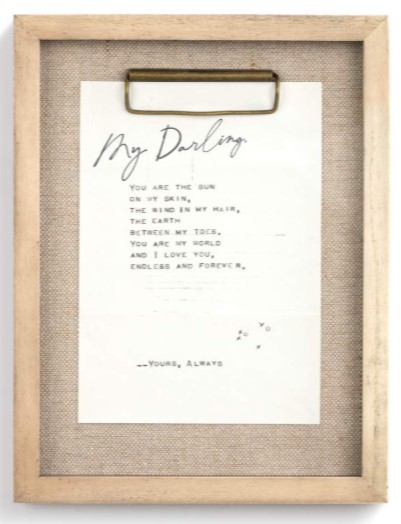 My Darling,
YOU ARE THE SUN
ON MY SKIN,
THE WIND IN MY HAIR,
THE EARTH
BETWEEN MY TOES.
YOU ARE MY WORLD
AND I LOVE YOU,
ENDLESS AND FOREVER.
XO XO X
--YOURS, ALWAYS